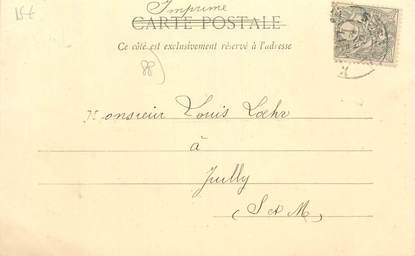 Imprimé
CARTE POSTALE
Ce côté est exclusivement réservé à l'adresse
88)
Monsieur Louis Loehr
à
Juilly
(S et M)